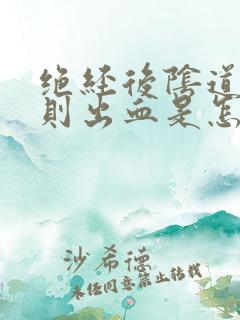 绝经後陰道
則出血是怎
沙希德
未经同意禁止转载